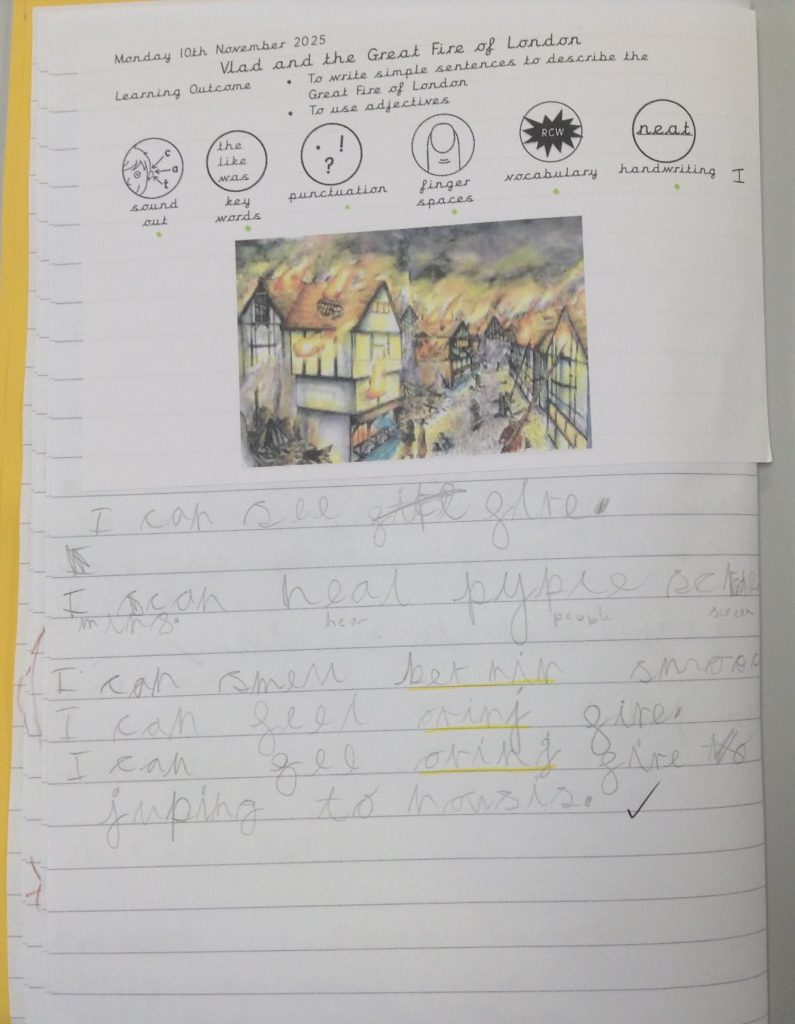 Monday 10th November 2025
Vlad and the Great Fire of London
Learning Outcome
• To write simple sentences to describe the
Great Fire of London
• To use adjectives
c
a
t
the
like
was
. !
?
RCW
neat
sound
out
key
words
punctuation
finger
spaces
vocabulary
handwriting
I
I can see gire.
I can heal pyple
mins.
hear people scream
I can smell bernin smooc
I can geel orinj gire.
I can gee orinj gire to
juping to housis. ✓